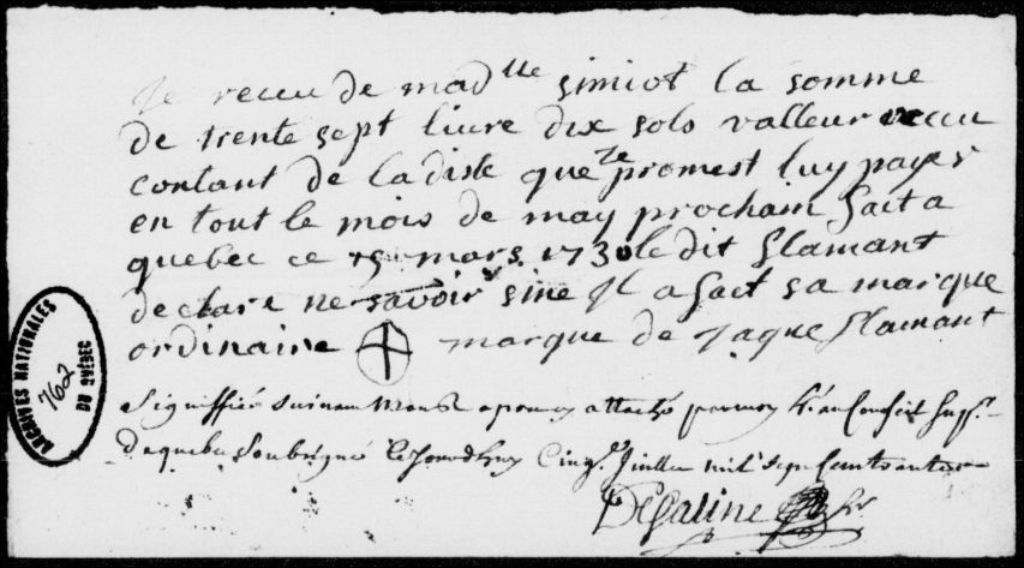 Je receu de mad^lle simiot la somme
de trente sept livre dix sols valleur receu
contant de la diste que Je promest luy payer
en tout le mois de may prochain fait a
quebec ce 15 mars 1730 le dit flamant
declare ne savoir sine Il a fact sa marque
ordinaire marque de Jaque flamant
Signiffié attaché par moy
De quebec Soubsigné Cinq^e Juillet mil sept
DeSaline
ARCHIVES NATIONALES
762
DU QUÉBEC